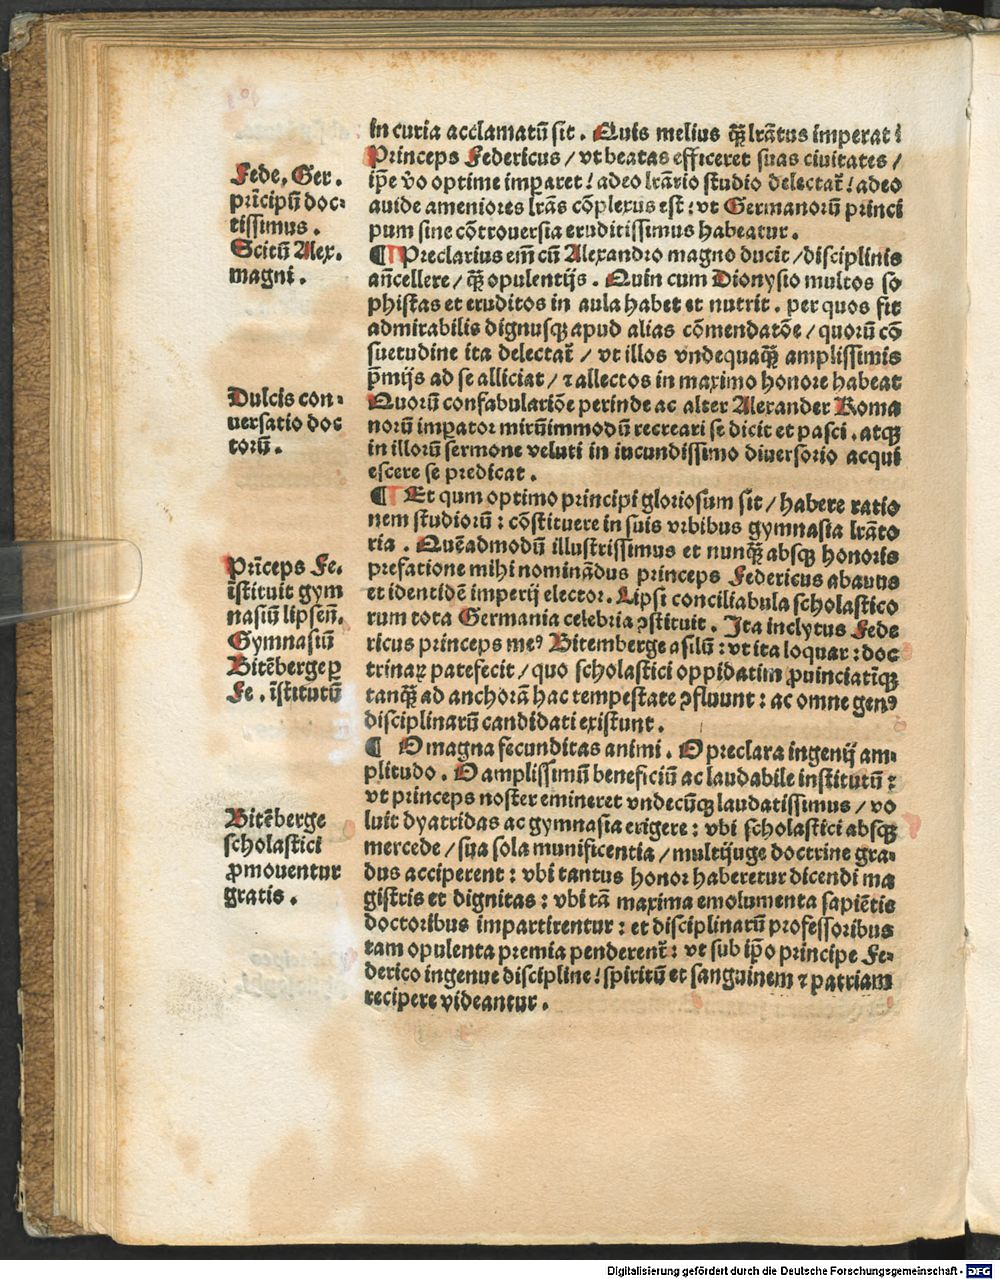 in curia acclamatū sit. Quis melius q̄ꝫ lrātus imperat?
Princeps Federicus / vt beatas efficeret suas ciuitates /
ip̄e v̄o optime imparet! adeo lrārio studio delectat̄! adeo
auide ameniores lrās cōplexus est: vt Germanorū princi
pum sine cōtrouersia eruditissimus habeatur.
Fede. Ger.
prīcipū doc-
tissimus.
Scitū Alex.
magni.
¶ Preclarius em̄ cū Alexandro magno ducit / disciplinis
an̄cellere / q̄ꝫ opulentijs. Quin cum Dionysio multos so
phistas et eruditos in aula habet et nutrit. per quos fit
admirabilis dignusqꝫ apud alias cōmendatōe / quorū cō
suetudine ita delectat̄ / vt illos vndequaq̄ꝫ amplissimis
p̄mijs ad se alliciat / ⁊ allectos in maximo honore habeat
Quorū confabulatiōe perinde ac alter Alexander Roma
norū imꝑator mirūimmodū recreari se dicit et pasci. atqꝫ
in illorū sermone veluti in iucundissimo diuersorio acqui
escere se predicat.
Dulcis con-
uersatio doc
torū.
¶ Et qum optimo principi gloriosum sit / habere ratio
nem studiorū: cōstituere in suis vrbibus gymnasia lrāto
ria. Quēadmodū illustrissimus et nunq̄ꝫ absqꝫ honoris
prefatione mihi nominādus princeps Federicus abauus
et identidē imperij elector. Lipsi conciliabula scholastico
rum tota Germania celebria ꝯstituit. Ita inclytus Fede
ricus princeps meꝰ Bitemberge asilū: vt ita loquar: doc
trinaꝝ patefecit / quo scholastici oppidatim ꝓuinciatīqꝫ
tanq̄ꝫ ad anchorā hac tempestate ꝯfluunt: ac omne genꝰ
disciplinarū candidati existunt.
Prīceps Fe.
īstituit gym
nasiū lipsen̄.
Gymnasiū
Bitēberge ꝑ
Fe. īstitutū
¶ O magna fecunditas animi. O preclara ingenij am-
plitudo. O amplissimū beneficiū ac laudabile institutū:
vt princeps noster emineret vndecūqꝫ laudatissimus / vo
luit dyatridas ac gymnasia erigere: vbi scholastici absqꝫ
mercede / sua sola munificentia / multijuge doctrine gra-
dus acciperent: vbi tantus honor haberetur dicendi ma
gistris et dignitas: vbi tā maxima emolumenta sapiētis
doctoribus impartirentur: et disciplinarū professoribus
tam opulenta premia penderent̄: vt sub ip̄o principe Fe-
derico ingenue discipline! spiritū et sanguinem ⁊ patriam
recipere videantur.
Bitēberge
scholastici
ꝓmouentur
gratis.
Digitalisierung gefördert durch die Deutsche Forschungsgemeinschaft - DFG